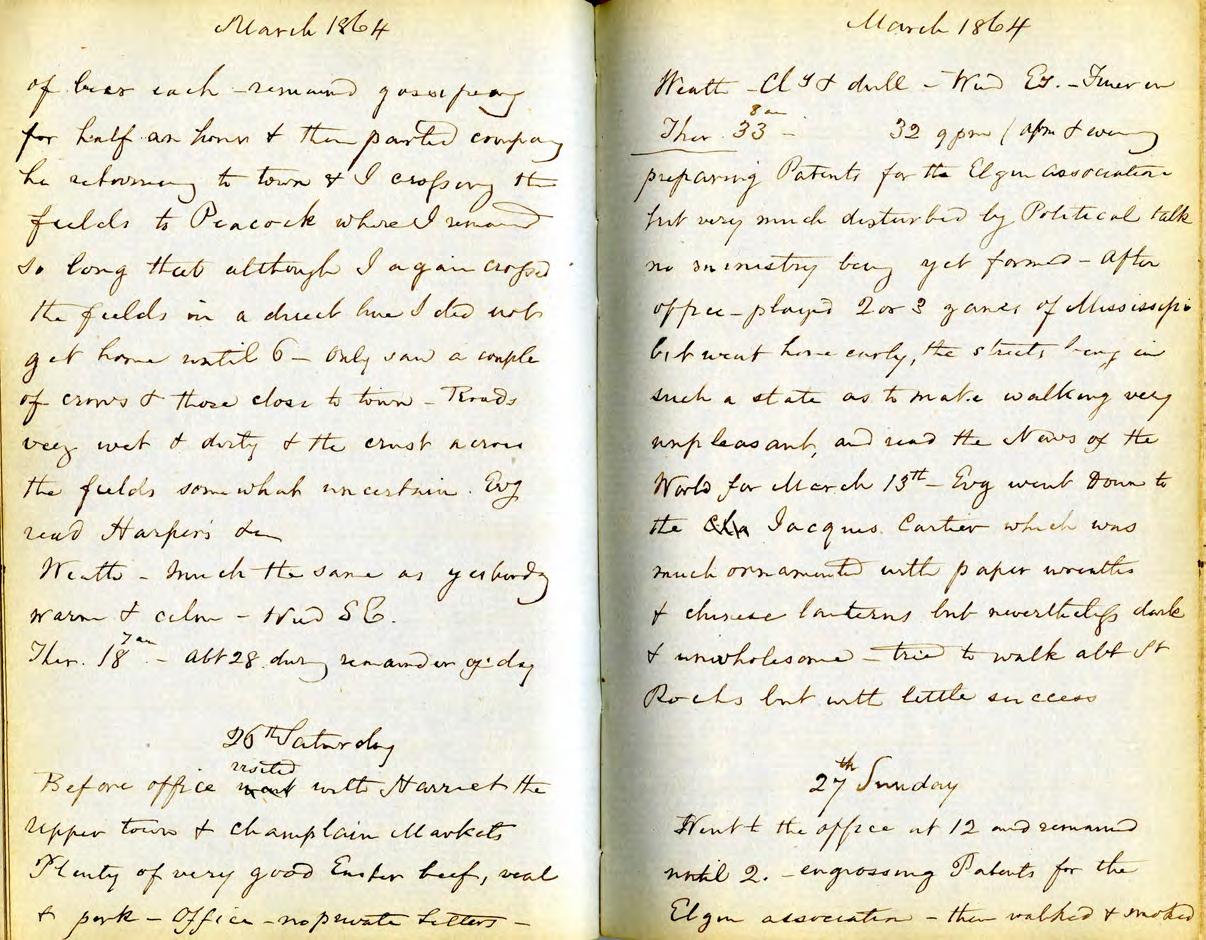 March 1864
of beer each - remained gossiping
for half an hour & then parted company
he returning to town & I crossing the
fields to Peacock where I remained
so long that although I again crossed
the fields in a direct line I did not
get home until 6 - Only saw a couple
of crows & those close to town - Roads
very wet & dirty & the crust across
the fields somewhat uncertain. Evg
read Harper's &c
Weath - Much the same as yesterday
warm & calm - Wind SE.
Ther. 18 7am - abt 28 during remainder of day
26th Saturday
Before office visited with Harriet the
Upper town & Champlain Markets
Plenty of very good Easter beef, veal
& pork - Office - no private letters -
March 1864
Weath - Cly & dull - Wind Ey. - Finer in
Ther. 33 8am - 32 9pm / apm & evening
preparing Patents for the Elgin association
but very much disturbed by Political talk
no ministry being yet formed - After
office - played 2 or 3 games of Mississipi
but went home early, the streets being in
such a state as to make walking very
unpleasant, and read the News of the
World for March 13th - Evg went Down to
the Jacques Cartier which was
much ornamented with paper wreaths
& chinese lanterns but nevertheless dark
& unwholesome - tried to walk abt St
Rochs but with little success
27th Sunday
Went to the office at 12 and remained
until 2. - engrossing Patents for the
Elgin association - then walked & smoked